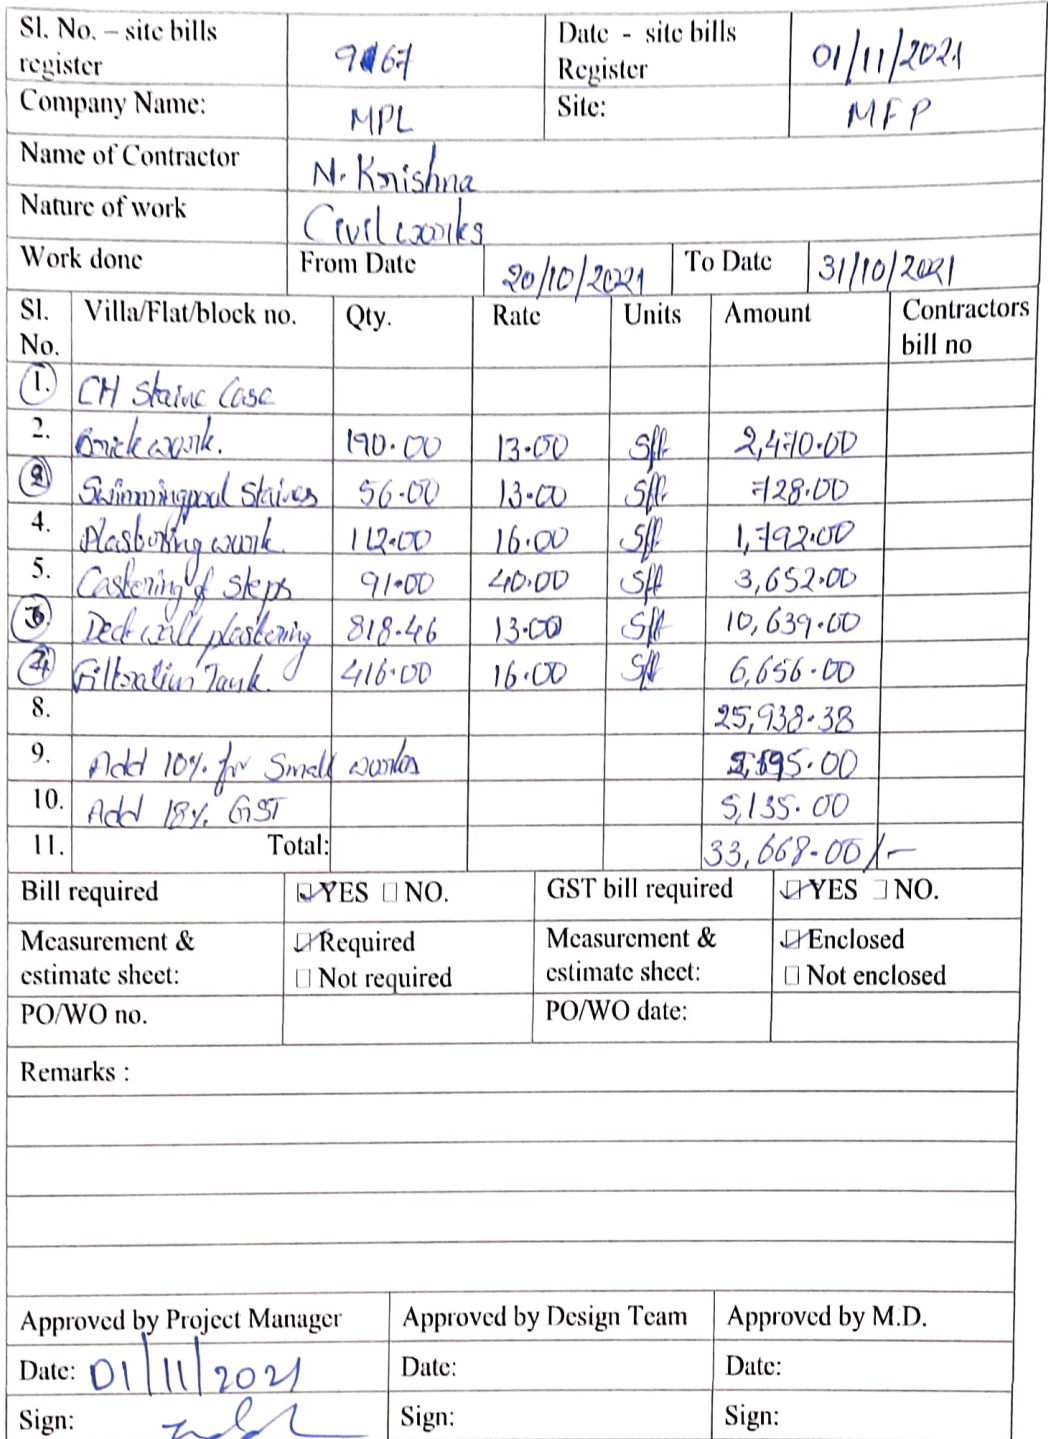 Sl. No. – site bills register 9167 Date - site bills Register 01/11/2021
Company Name: MPL Site: MFP
Name of Contractor N. Krishna
Nature of work Civil works
Work done From Date 20/10/2021 To Date 31/10/2021
Sl. No. Villa/Flat/block no. Qty. Rate Units Amount Contractors bill no
1. CH Staire Case
2. Brick work. 190.00 13.00 Sft 2,470.00
3 Swimmingpool Staires 56.00 13.00 Sft 728.00
4. Plastoring work. 112.00 16.00 Sft 1,792.00
5. Castering of steps 91.00 40.00 Sft 3,652.00
3 Deck wall plastering 818.46 13.00 Sft 10,639.00
4 Filtration Tank. 416.00 16.00 Sft 6,656.00
8. 25,938.38
9. Add 10% for Small works 2,595.00
10. Add 18% GST 5,135.00
11. Total: 33,668.00/-
Bill required YES NO. GST bill required YES NO.
Measurement & estimate sheet: Required Not required Measurement & estimate sheet: Enclosed Not enclosed
PO/WO no. PO/WO date:
Remarks :
Approved by Project Manager Approved by Design Team Approved by M.D.
Date: 01/11/2021 Date: Date:
Sign: Sign: Sign: